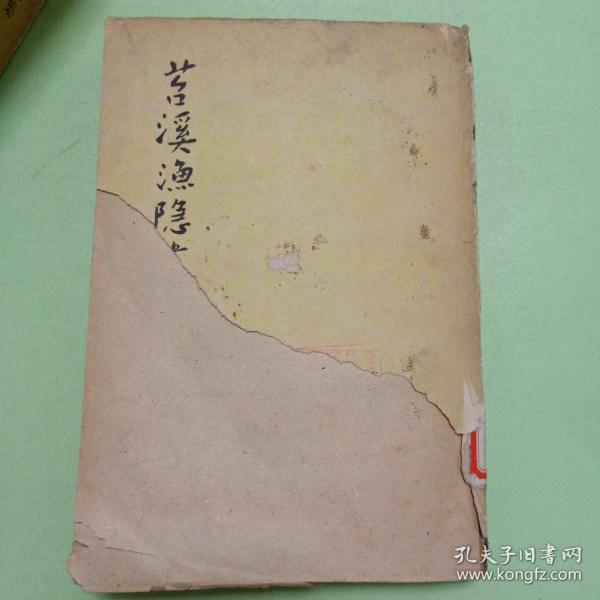 苕溪漁隐
孔夫子旧書网
www.kongfz.com